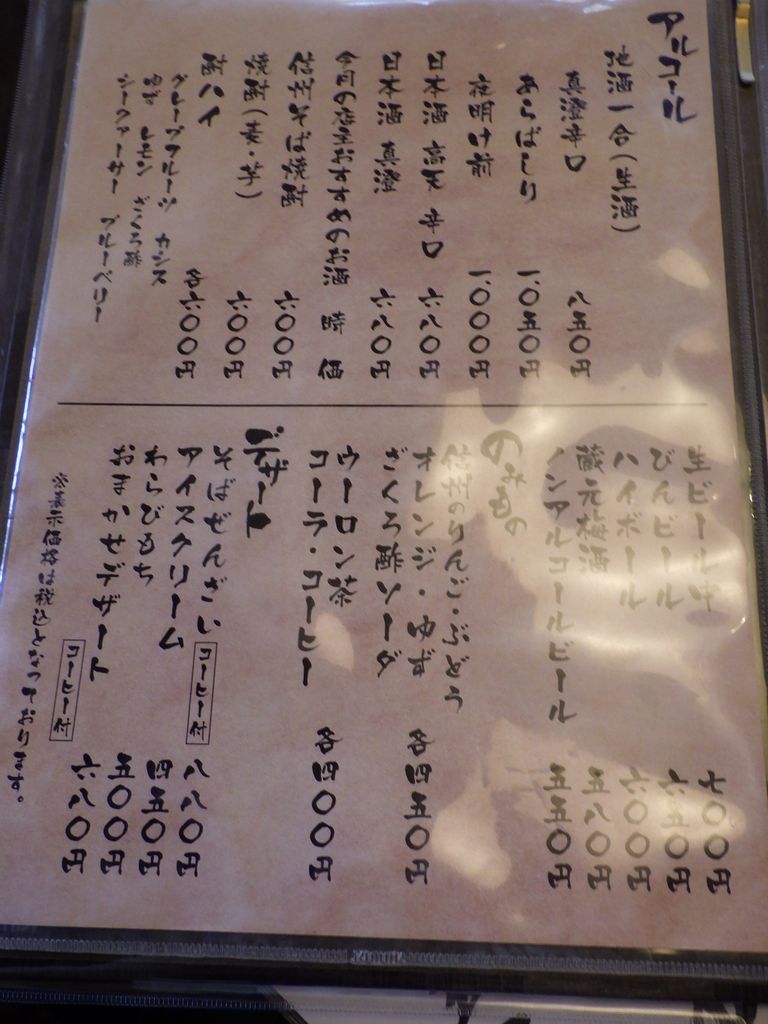 アルコール
地酒一合(生酒)
真澄辛口 八五〇円
あらばしり 一、〇五〇円
夜明け前 一、〇〇〇円
日本酒 高天 辛口 六八〇円
日本酒 真澄 六八〇円
今月の店主おすすめのお酒 時価
信州そば焼酎 六〇〇円
焼酎(麦・芋) 六〇〇円
酎ハイ 各六〇〇円
グレープフルーツ カシス
ゆず レモン ざくろ酢
シークァーサー ブルーベリー
生ビール中 七〇〇円
びんビール 六五〇円
ハイボール 六〇〇円
蔵元梅酒 五八〇円
ノンアルコールビール 五五〇円
のみもの
信州のりんご・ぶどう
オレンジ・ゆず 各四五〇円
ざくろ酢ソーダ
ウーロン茶
コーラ・コーヒー 各四〇〇円
デザート
そばぜんざい コーヒー付 八八〇円
アイスクリーム 四五〇円
わらびもち 五〇〇円
おまかせデザート コーヒー付 六八〇円
※表示価格は税込となっております。